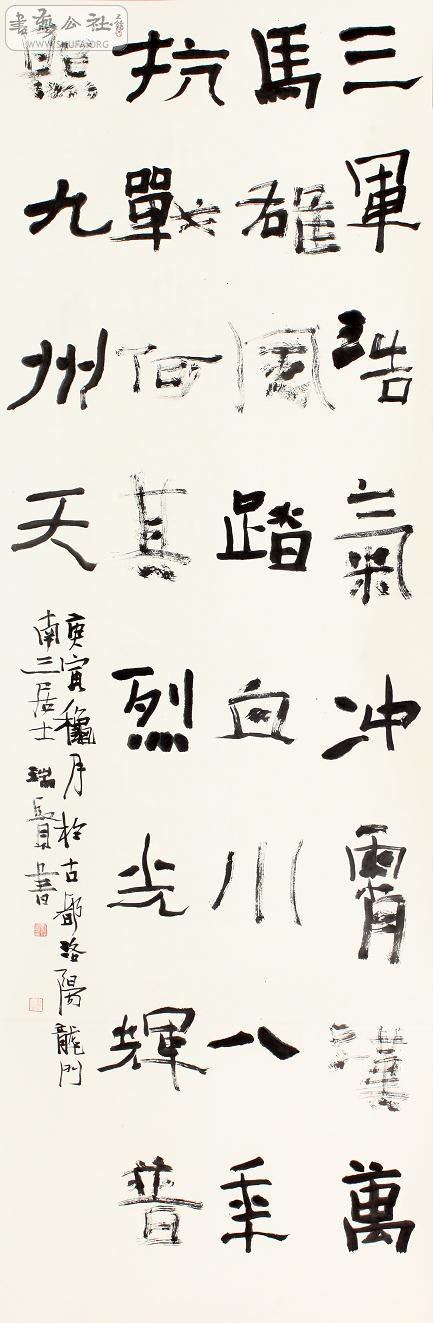 三軍浩氣冲霄漢萬
馬雄風踏血川八年
抗戰何其烈光輝普
照九州天
庚寅龝月於古都洛陽龍門
南三居士瑞賢書
書藝公社
WWW.SHUFA.ORG